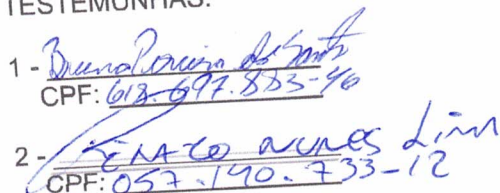 TESTEMUNHAS:
1 - Bruno Pereira de Santos
CPF: 613.697.883-46
2 - RENATO NUNES Lima
CPF: 057.140.733-12